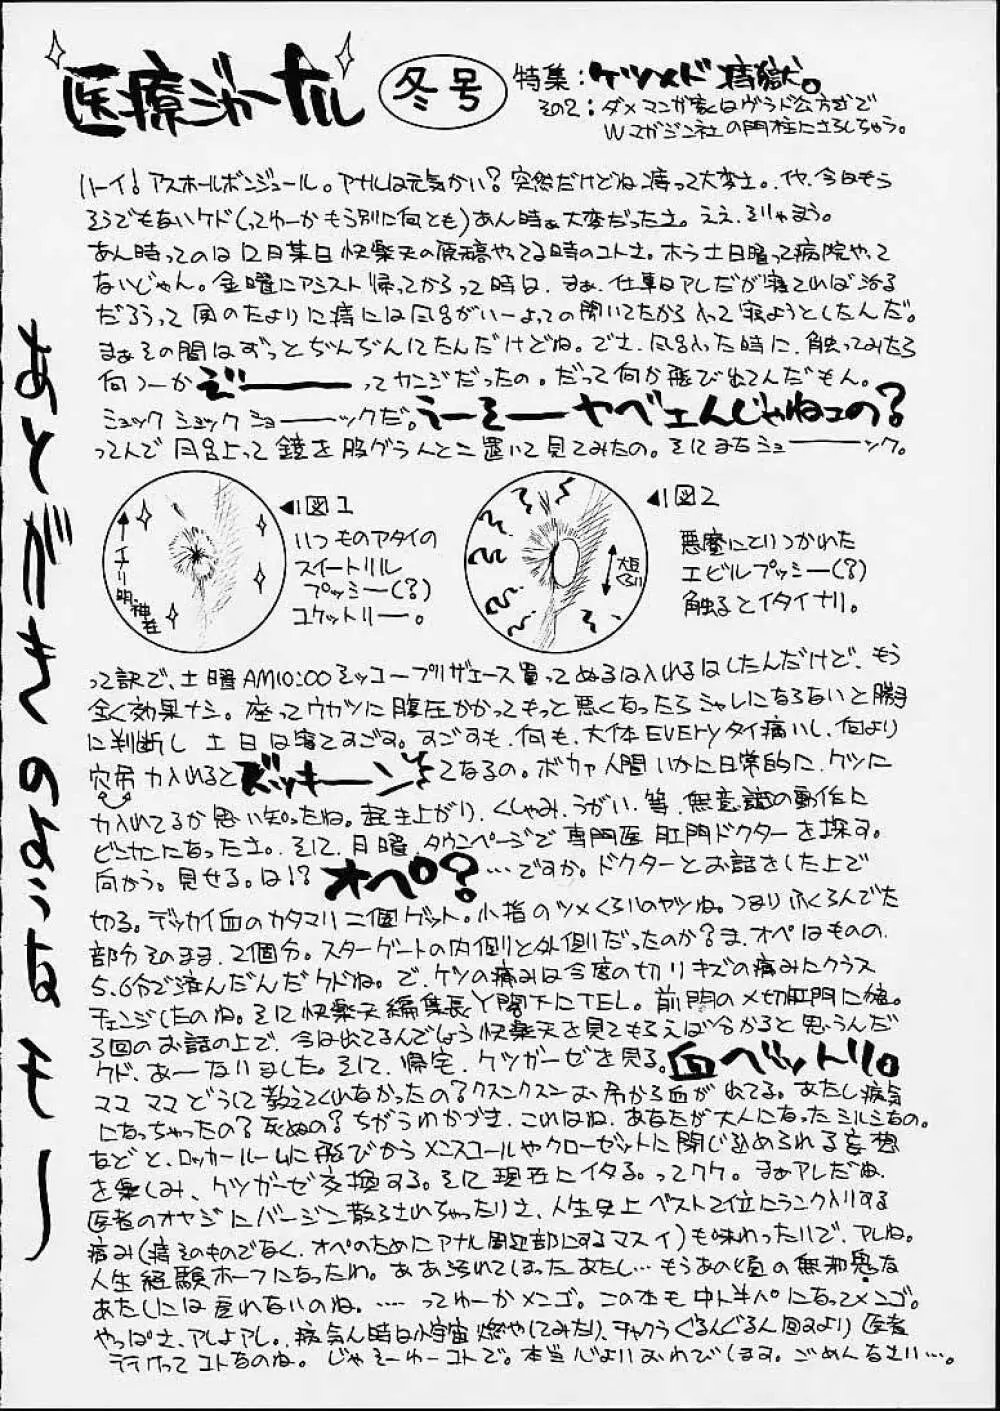 医療ジャーナル 冬号 特集:ケツメド痔獄。
その2:ダメマンガ家はヴラド公方式で
Wマガジン社の門柱にさらしちゃう。
ハーイ!アスホールボンジュール。アナルは元気かい?突然だけどね痔って大変さ。イヤ、今日もう
そうでもないケド(ってゆーかもう別に何とも)あん時ぁ大変だったさ。ええ、そりゃもう。
あん時ってのは12月某日快楽天の原稿やってる時のコトさ。ホラ土日曜って病院やって
ないじゃん。金曜にアシスト帰ってからって時は、まぁ、仕事日アレだが寝てれば治る
だろうって風のたよりに痔には風呂がいーよっての聞いてたから入って寝ようとしたんだ。
まぁその間はずっとぢんぢんしてたんだけどね。でさ、風呂入った時に、触ってみたら
何つーかぞーーってカンジだったの。だって何か飛び出てんだもん。
ショックショックショーーックだ。うーそーヤベェんじゃねェの?
ってんで風呂上って鏡を股グラんとこ置いて見てみたの。そしてまたショーーック。
◀図1
いつものアタイの
スイートリル
プッシー(?)
コケットリー。
◀図2
悪魔にとりつかれた
エビルプッシー(?)
触るとイタイナリ。
って訳で、土曜AM10:00ミッコープリザエース買ってぬるは入れるはしたんだけど、もう
全く効果ナシ。座ってウカツに腹圧かかってもっと悪くなったらシャレにならないと勝手
に判断し土日は寝てすごす。すごすも、何も、大体EVERYタイ痛いし、何より
穴吊力入れるとズッキーンとてなるの。ボカァ人間いかに日常的に、ケツに
力入れてるか思い知ったね。起き上がり、くしゃみ、うがい、等、無意識の動作に
ビンカンになったさ。そして、月曜、タウンページで専門医肛門ドクターを探す。
向かう。見せる。は!?オペ?…ですか。ドクターとお話をした上で
切る。デッカイ血のカタマリ二個ゲット。小指のツメくらいのヤツね。つまりふくらんでた
部分そのまま、2個分。スターゲートの内側と外側だったのか?ま、オペはものの、
5.6分で済んだんだケドね。で、ケツの痛みは今度の切りキズの痛みにクラス
チェンジしたのね。そして快楽天編集長Y閣下にTEL。前門の〆切肛門に狼。
3回のお話の上で、今は出てるんでしょう快楽天を見てもらえば分かると思うんだ
ケド、あーなりました。そして、帰宅、ケツガーゼを見る。血ベットリ。
ママ ママどうして教えてくれなかったの?クスンクスンお吊から血が出てる。あたし病気
になっちゃったの?死ぬの?ちがうわかづき、これはね、あなたが大人になったシルシなの。
などと、ロッカールームに飛びかうメンスコールやクローゼットに閉じ込められる妄想
を楽しみ、ケツガーゼ交換する。そして現在にイタる。ってワケ。まぁアレだね、
医者のオヤジにバージン散らされちゃったりさ、人生史上ベスト2位にランク入りする
痛み(痔そのものでなく、オペのためにアナル周辺部にするマスイ)も味わったりで、アレね。
人生経験ホーフになったわ。ああ汚れてしまったあたし…もうあの頃の無邪鬼な
あたしには戻れないのね。……ってゆーかメンゴ。この本も中ト半パになってメンゴ。
やっぱさ、アレよアレ。病気ん時は小宇宙燃やしてみたり、チャクラぐるんぐるん回すより医者
行けってコトなのね。じゃそーゆーコトで。本当心よりおわびします。ごめんなさい…。
あとがきのようなモノー